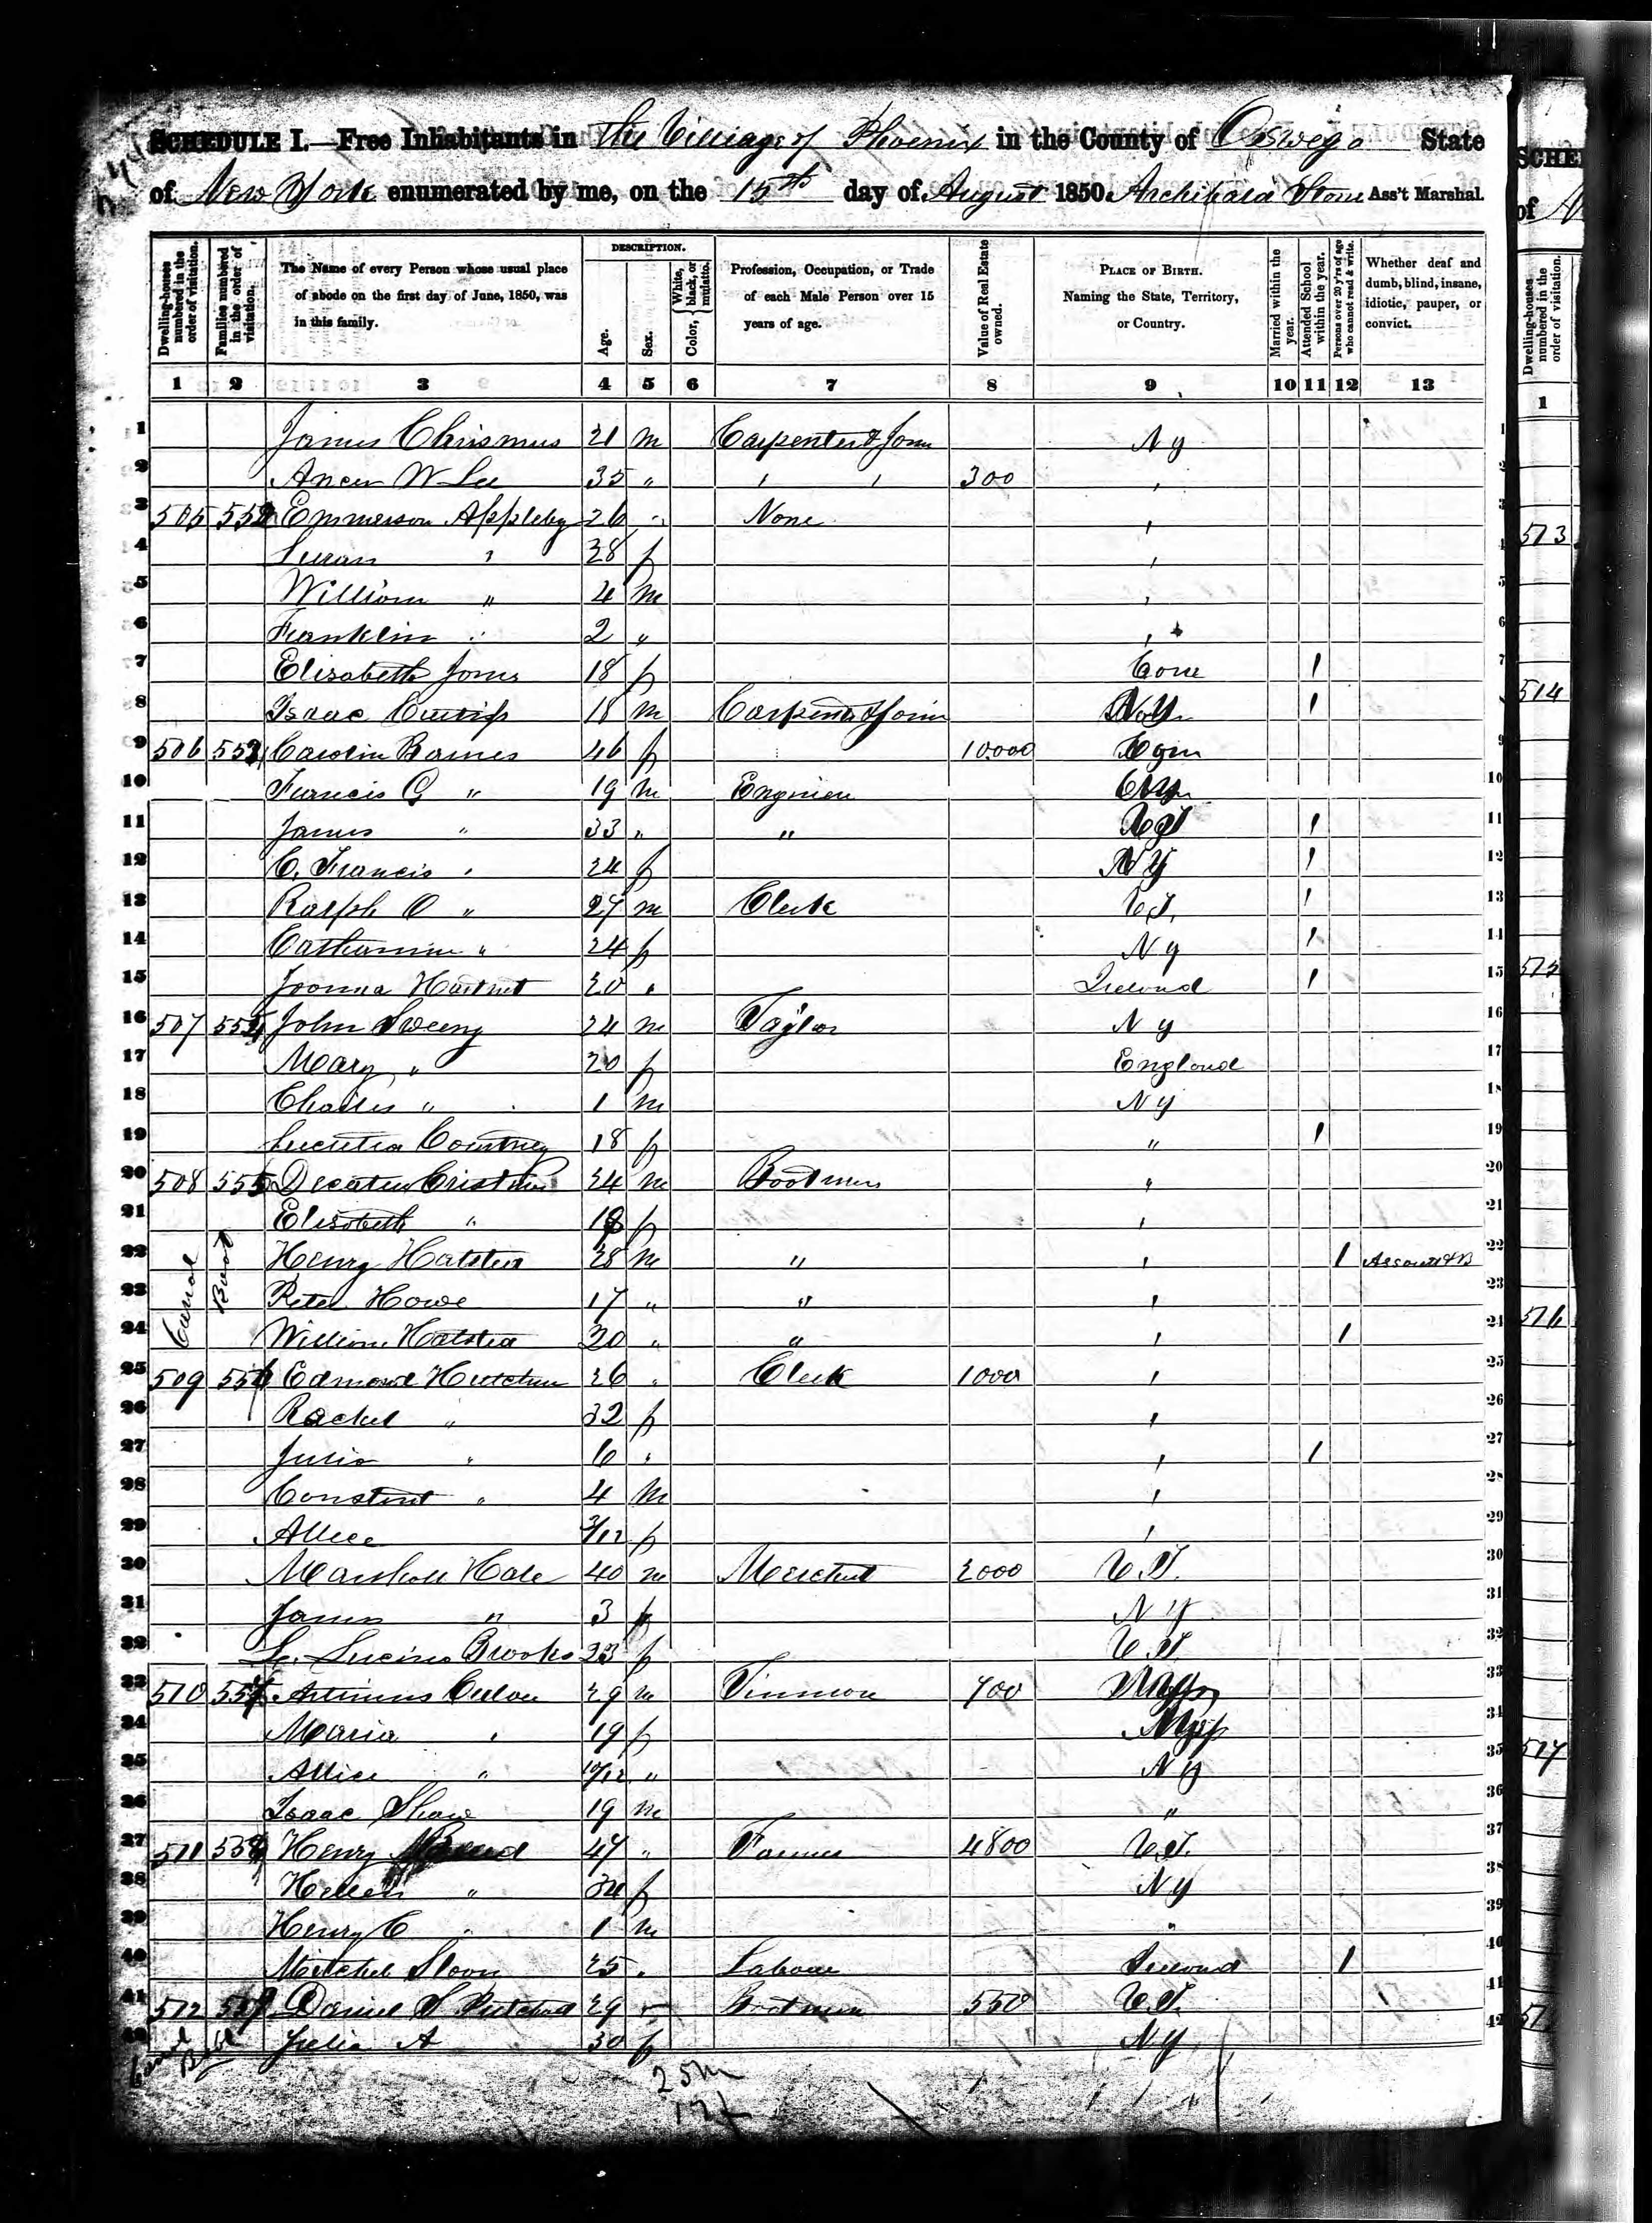 SCHEDULE I.—Free Inhabitants in The Village of Phoenix in the County of Oswego State
of New York enumerated by me, on the 15th day of August 1850. Archibald Stone Ass't Marshal.
Dwelling-houses numbered in the order of visitation.
Families numbered in the order of visitation.
The Name of every Person whose usual place of abode on the first day of June, 1850, was in this family.
DESCRIPTION.
Age.
Sex.
Color, { White, black, or mulatto.
Profession, Occupation, or Trade of each Male Person over 15 years of age.
Value of Real Estate owned.
PLACE OF BIRTH. Naming the State, Territory, or Country.
Married within the year.
Attended School within the year.
Persons over 20 y'rs of age who cannot read & write.
Whether deaf and dumb, blind, insane, idiotic, pauper, or convict.
1 2 3 4 5 6 7 8 9 10 11 12 13
1 James Chrismus 21 m Carpenter & Join N Y
2 W Lee 35 " " " 300 "
3 505 552 Emmerson Appleby 26 " None "
4 Susan " 28 f "
5 William " 4 m "
6 Franklin " 2 " "
7 Elisabeth Jones 18 f Conn 1
8 Isaac Curtiss 18 m Carpenter & Join N Y 1
9 506 553 Carolin Barnes 46 f 10000 Conn
10 Francis G " 19 m Enginier
11 James " 33 " " 1
12 C. Francis " 24 f N Y 1
13 Ralph O " 27 m Clerk V.T. 1
14 Catharine " 24 f N Y 1
15 Joanna Hartnet 20 " Ireland 1
16 507 554 John Sweeny 24 m Taylor N Y
17 Mary " 20 f England
18 Charles " 1 m N Y
19 Lucretia Courtney 18 f " 1
20 508 555 Decatur 24 m Boatman "
21 Elisabeth " 18 f "
Canal Boat
22 Henry Halsted 28 m " " 1
23 Peter Howe 17 " " "
24 William Halsted 20 " " " 1
25 509 556 Edmond Hutchin 26 " Clerk 1000 "
26 Rachel " 32 f "
27 Julia " 6 " " 1
28 Constent " 4 m "
29 Allice 3/12 f "
30 Marshall Hale 40 m Merchant 2000 V.T.
31 James " 3 N Y
32 Brooks 23 f V.T.
33 510 557 29 m Tinman 700 Mass
34 Maria " 19 f
35 Allice " 10/12 " N Y
36 Isaac Shaw 19 m "
37 511 558 Henry 47 " Farmer 4800 V.T.
38 Hellen " 34 f N Y
39 Henry C " 1 m "
40 Mitchel Sloan 25 " Labour Ireland 1
41 512 559 Daniel S 29 Boatman 550 V.T.
42 Julia A 30 f N Y
Canal Boat
25 m
17 f
SCHE
of N
Dwelling-houses numbered in the order of visitation.
1
513
514
515
516
517